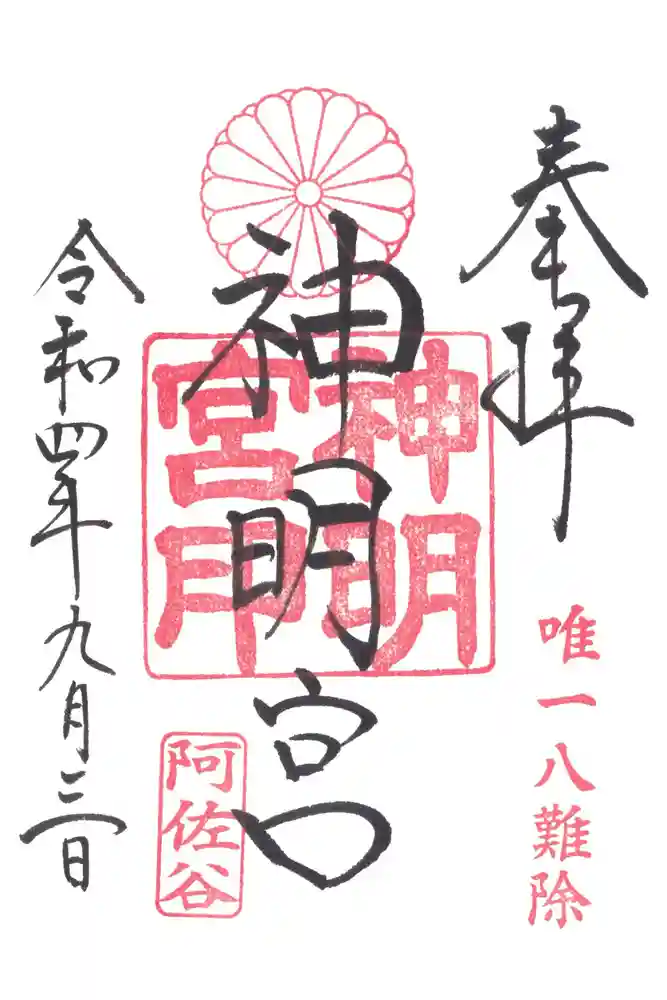 奉拝
唯一八難除
神明宮
神明
宮印
阿佐谷
令和四年九月三日